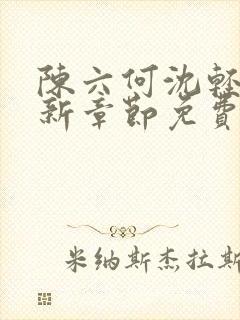 陳六何沈輕
新章節免費
米纳斯杰拉斯